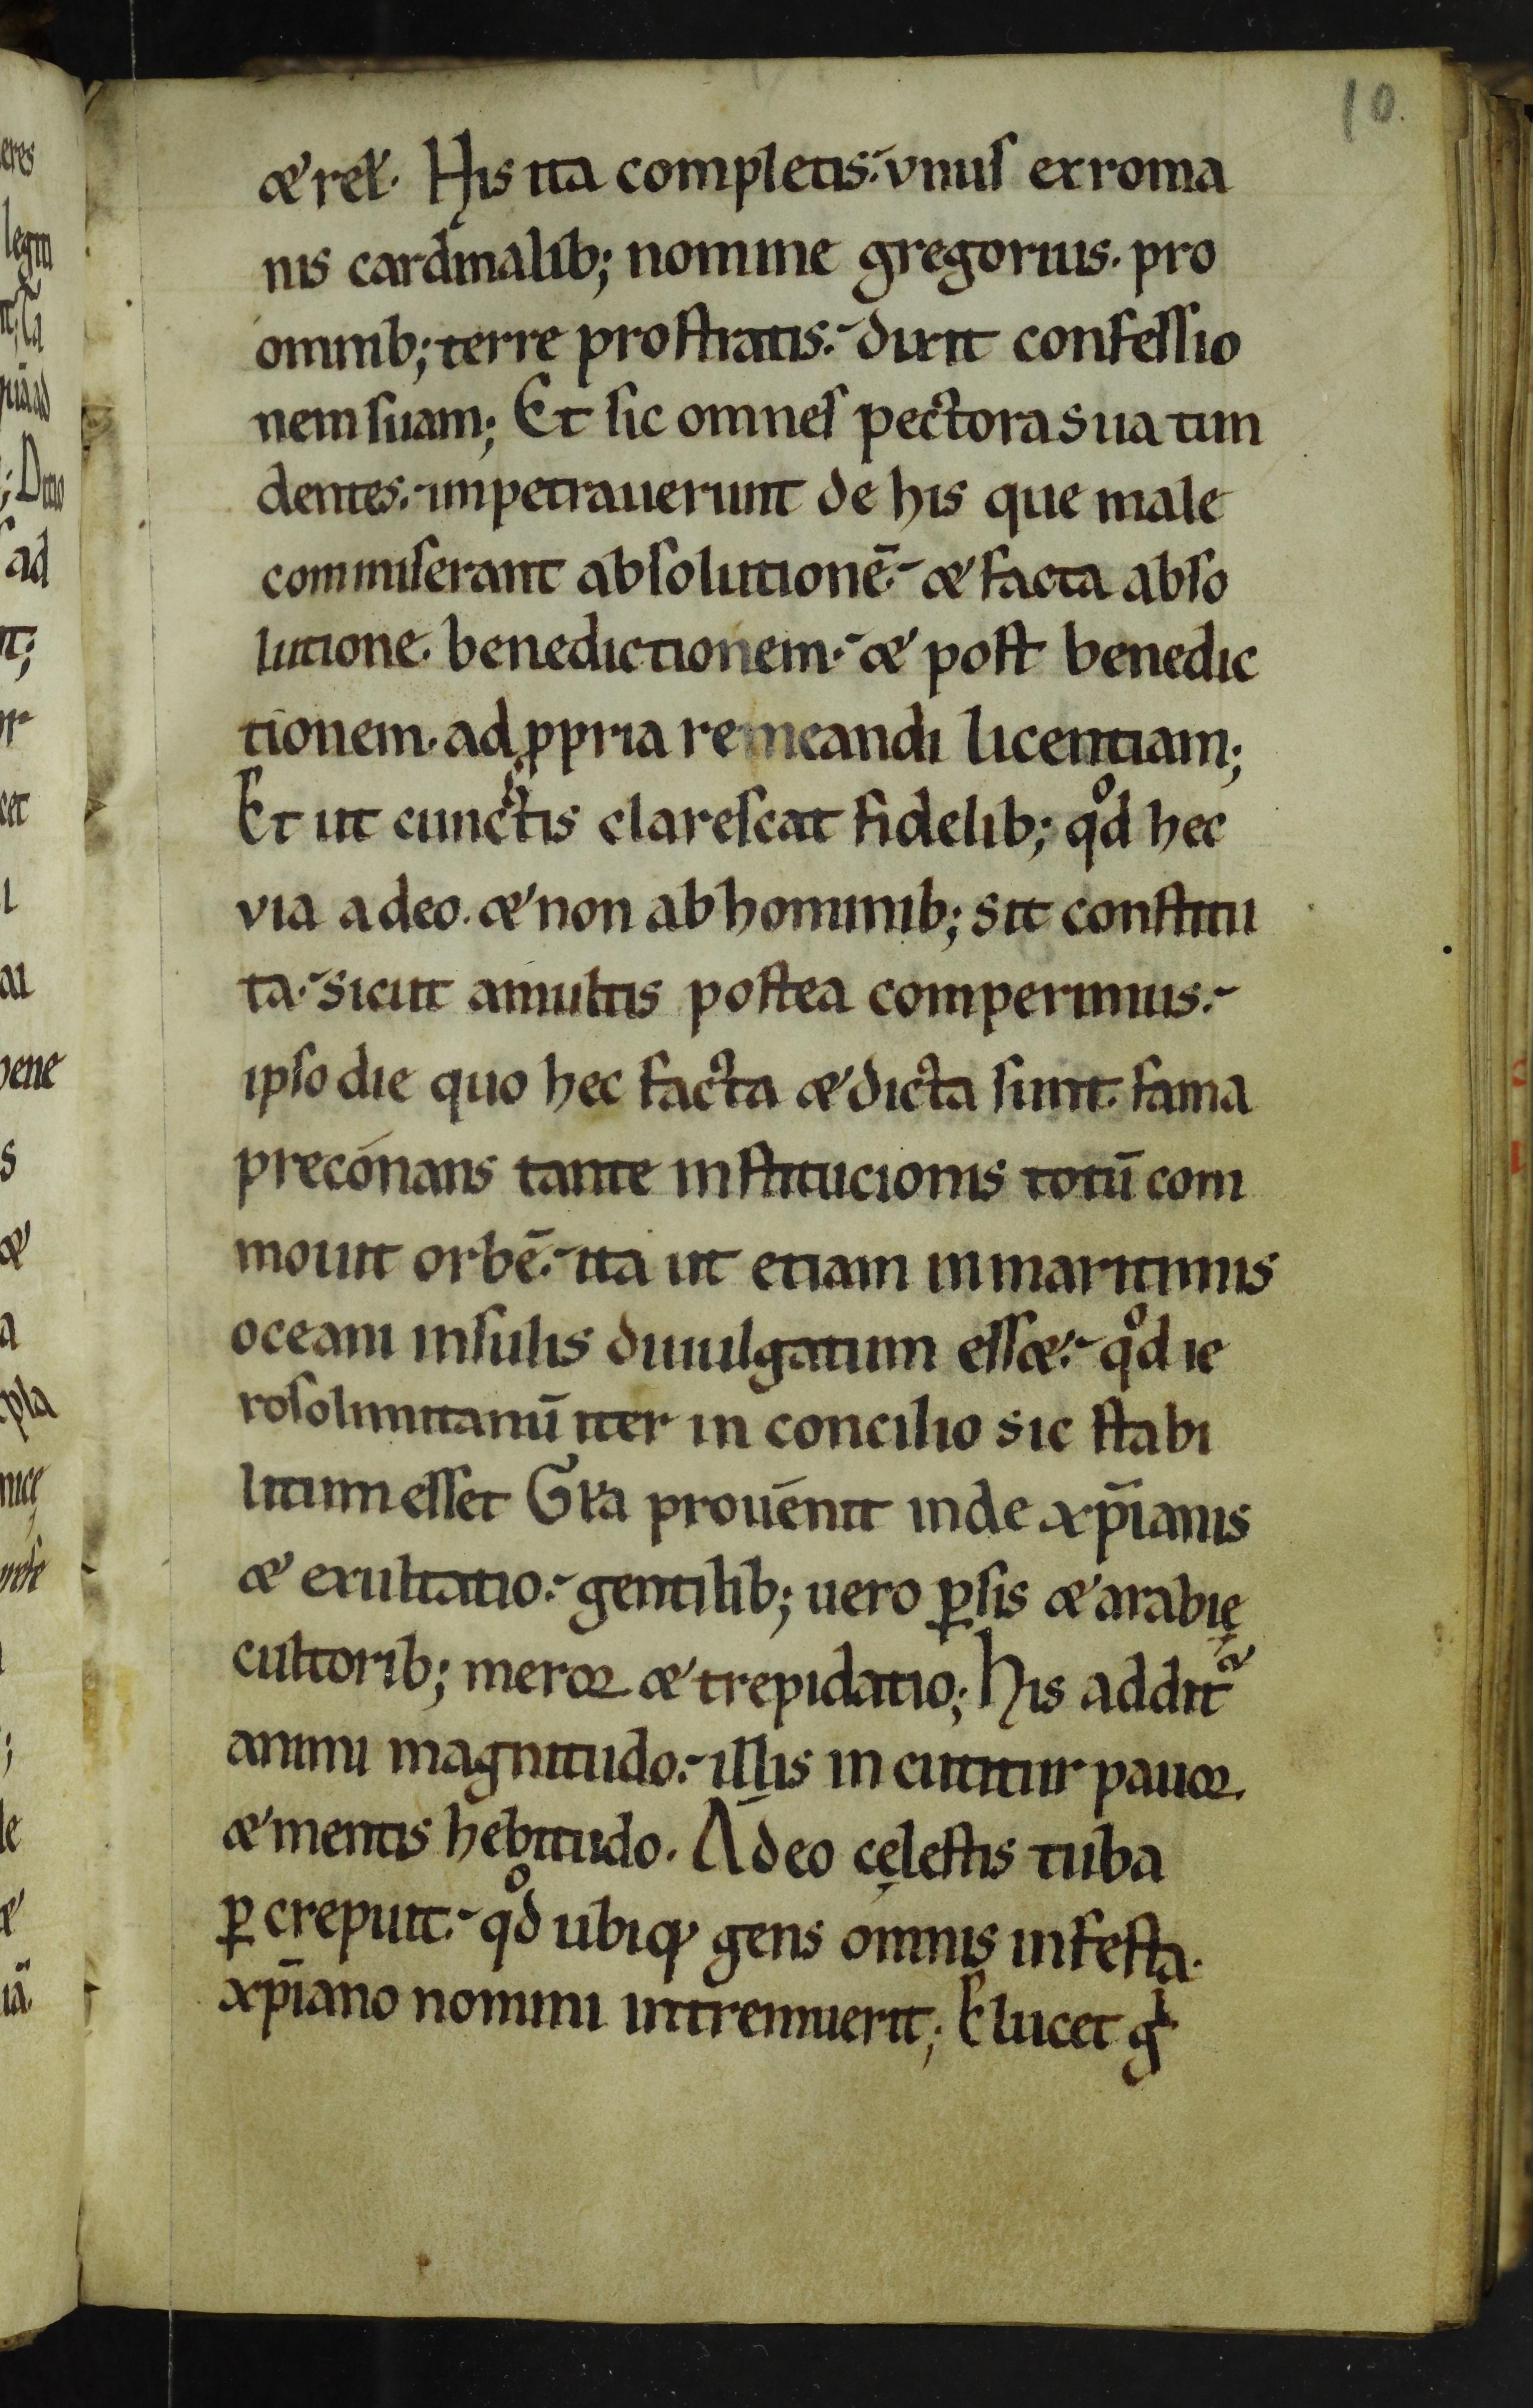 10.
& rel̛. His ita completis. vnus ex roma
nis cardinalib; nomine gregorius. pro
omnib; terre prostratis. dixit confessio
nem suam; Et sic omnes pectora sua tun
dentes. impetrauerunt de his que male
commiserant absolutionē. & facta abso
lutione. benedictionem. & post benedic
tionem. ad ꝓpria remeandi licentiam;
Et ut cunctis clarescat fidelib; qͦd hec
via a deo. & non ab hominib; sit constitu
ta. sicut a multis postea comperimus.
ipso die quo hec facta & dicta sunt. fama
preconans tante institucionis totū com
mouit orbē. ita ut etiam in maritimis
oceani insulis diuulgatum ess&. qͦd ie
rosolimitanū iter in concilio sic stabi
litum esset Gła prouenit inde xp̄ianis
& exultatio. gentilib; uero ꝑsis & arabię
cultorib; meror & trepidatio; His addit᷑
animi magnitudo. illis incutitur pauor.
& mentis hebitudo. Adeo cęlestis tuba
ꝑcrepuit. qͦd ubiq; gens omnis infesta.
xp̄iano nomini intremuerit; Elucet g̛